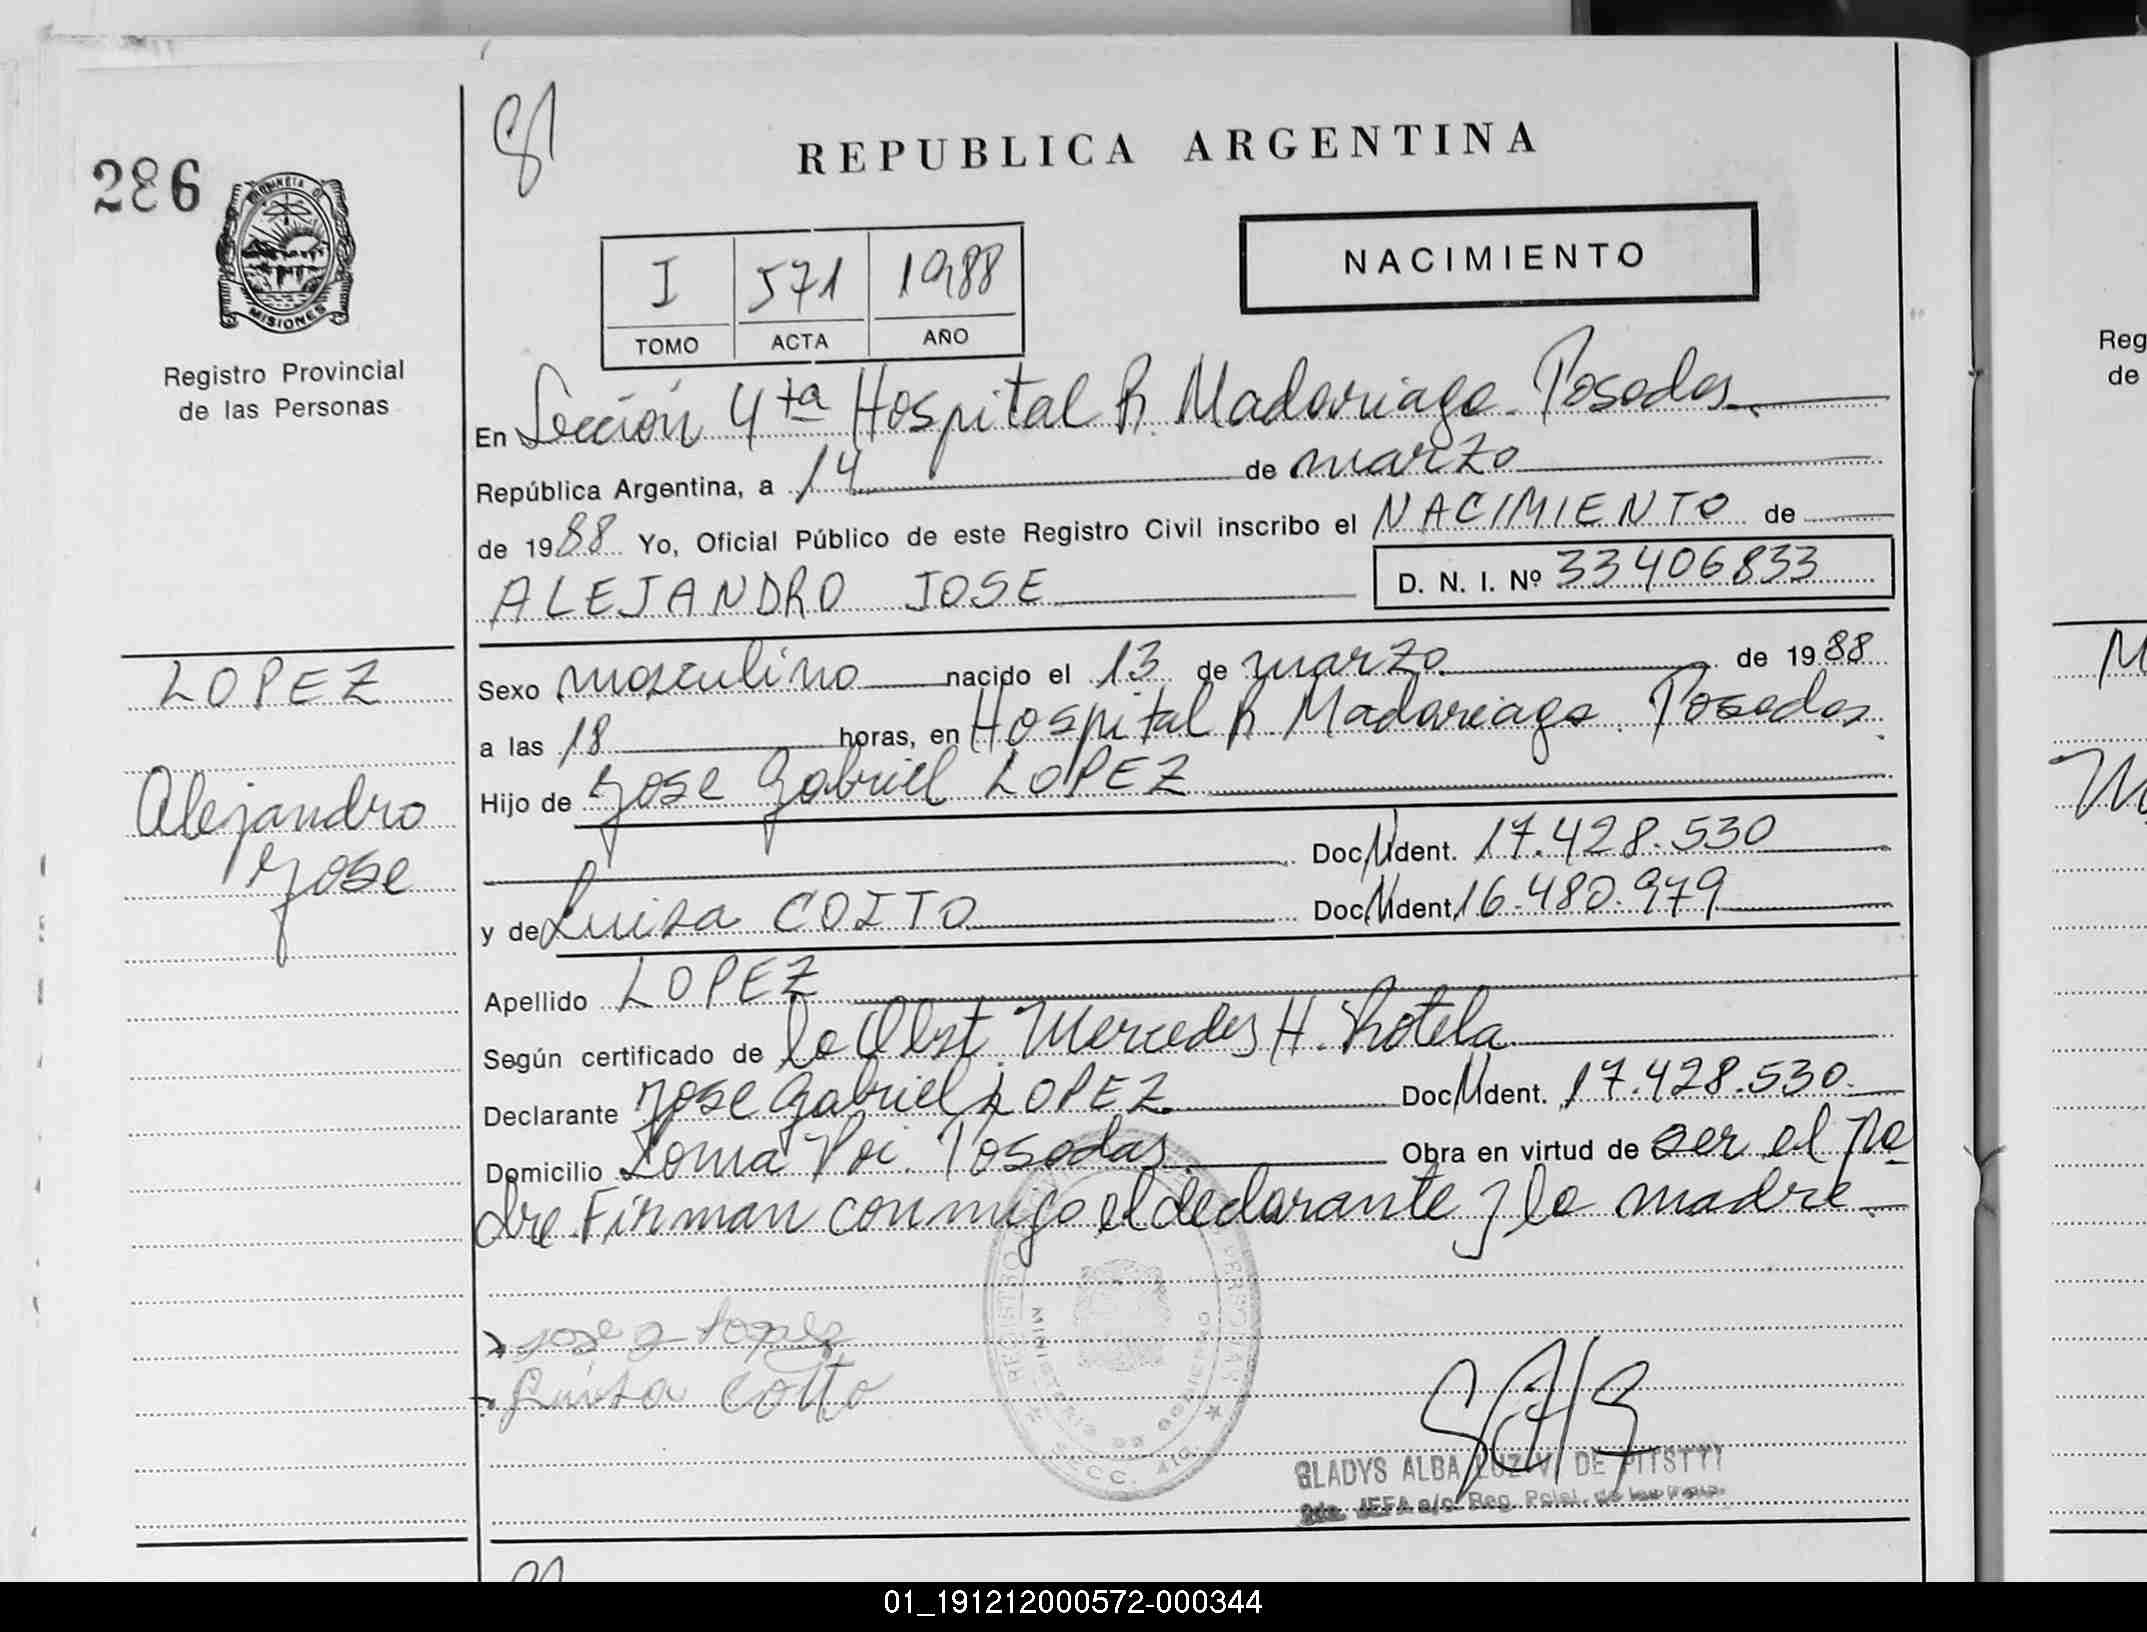 286
81
REPUBLICA ARGENTINA
PROVINCIA DE
MISIONES
Registro Provincial
de las Personas
NACIMIENTO
I 571 1988
TOMO ACTA AÑO
En Sección 4ta Hospital R. Madariaga. Posadas
República Argentina, a 14 de marzo
de 1988 Yo, Oficial Público de este Registro Civil inscribo el NACIMIENTO de
ALEJANDRO JOSE D. N. I. Nº 33406833
LOPEZ
Alejandro
Jose
Sexo masculino nacido el 13 de marzo de 1988
a las 18 horas, en Hospital R. Madariaga. Posadas.
Hijo de Jose Gabriel LOPEZ
Doc. Ident. 17.428.530
y de Luisa COITO Doc. Ident. 16.480.979
Apellido LOPEZ
Según certificado de la Obst. Mercedes H. Rotela
Declarante Jose Gabriel LOPEZ Doc. Ident. 17.428.530.
Domicilio Loma Poi. Posadas Obra en virtud de ser el pa
dre. Firman conmigo el declarante y la madre.
Jose G Lopez
Luisa Coito
REGISTRO PERSONAS
MINISTERIO DE GOBIERNO
GLADYS ALBA LUZ V. DE PITSTTI
JEFA a/c. Reg.
Reg
de
01_191212000572-000344